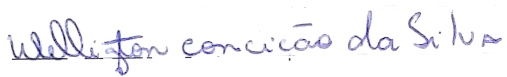 Wellington conceição da Silva